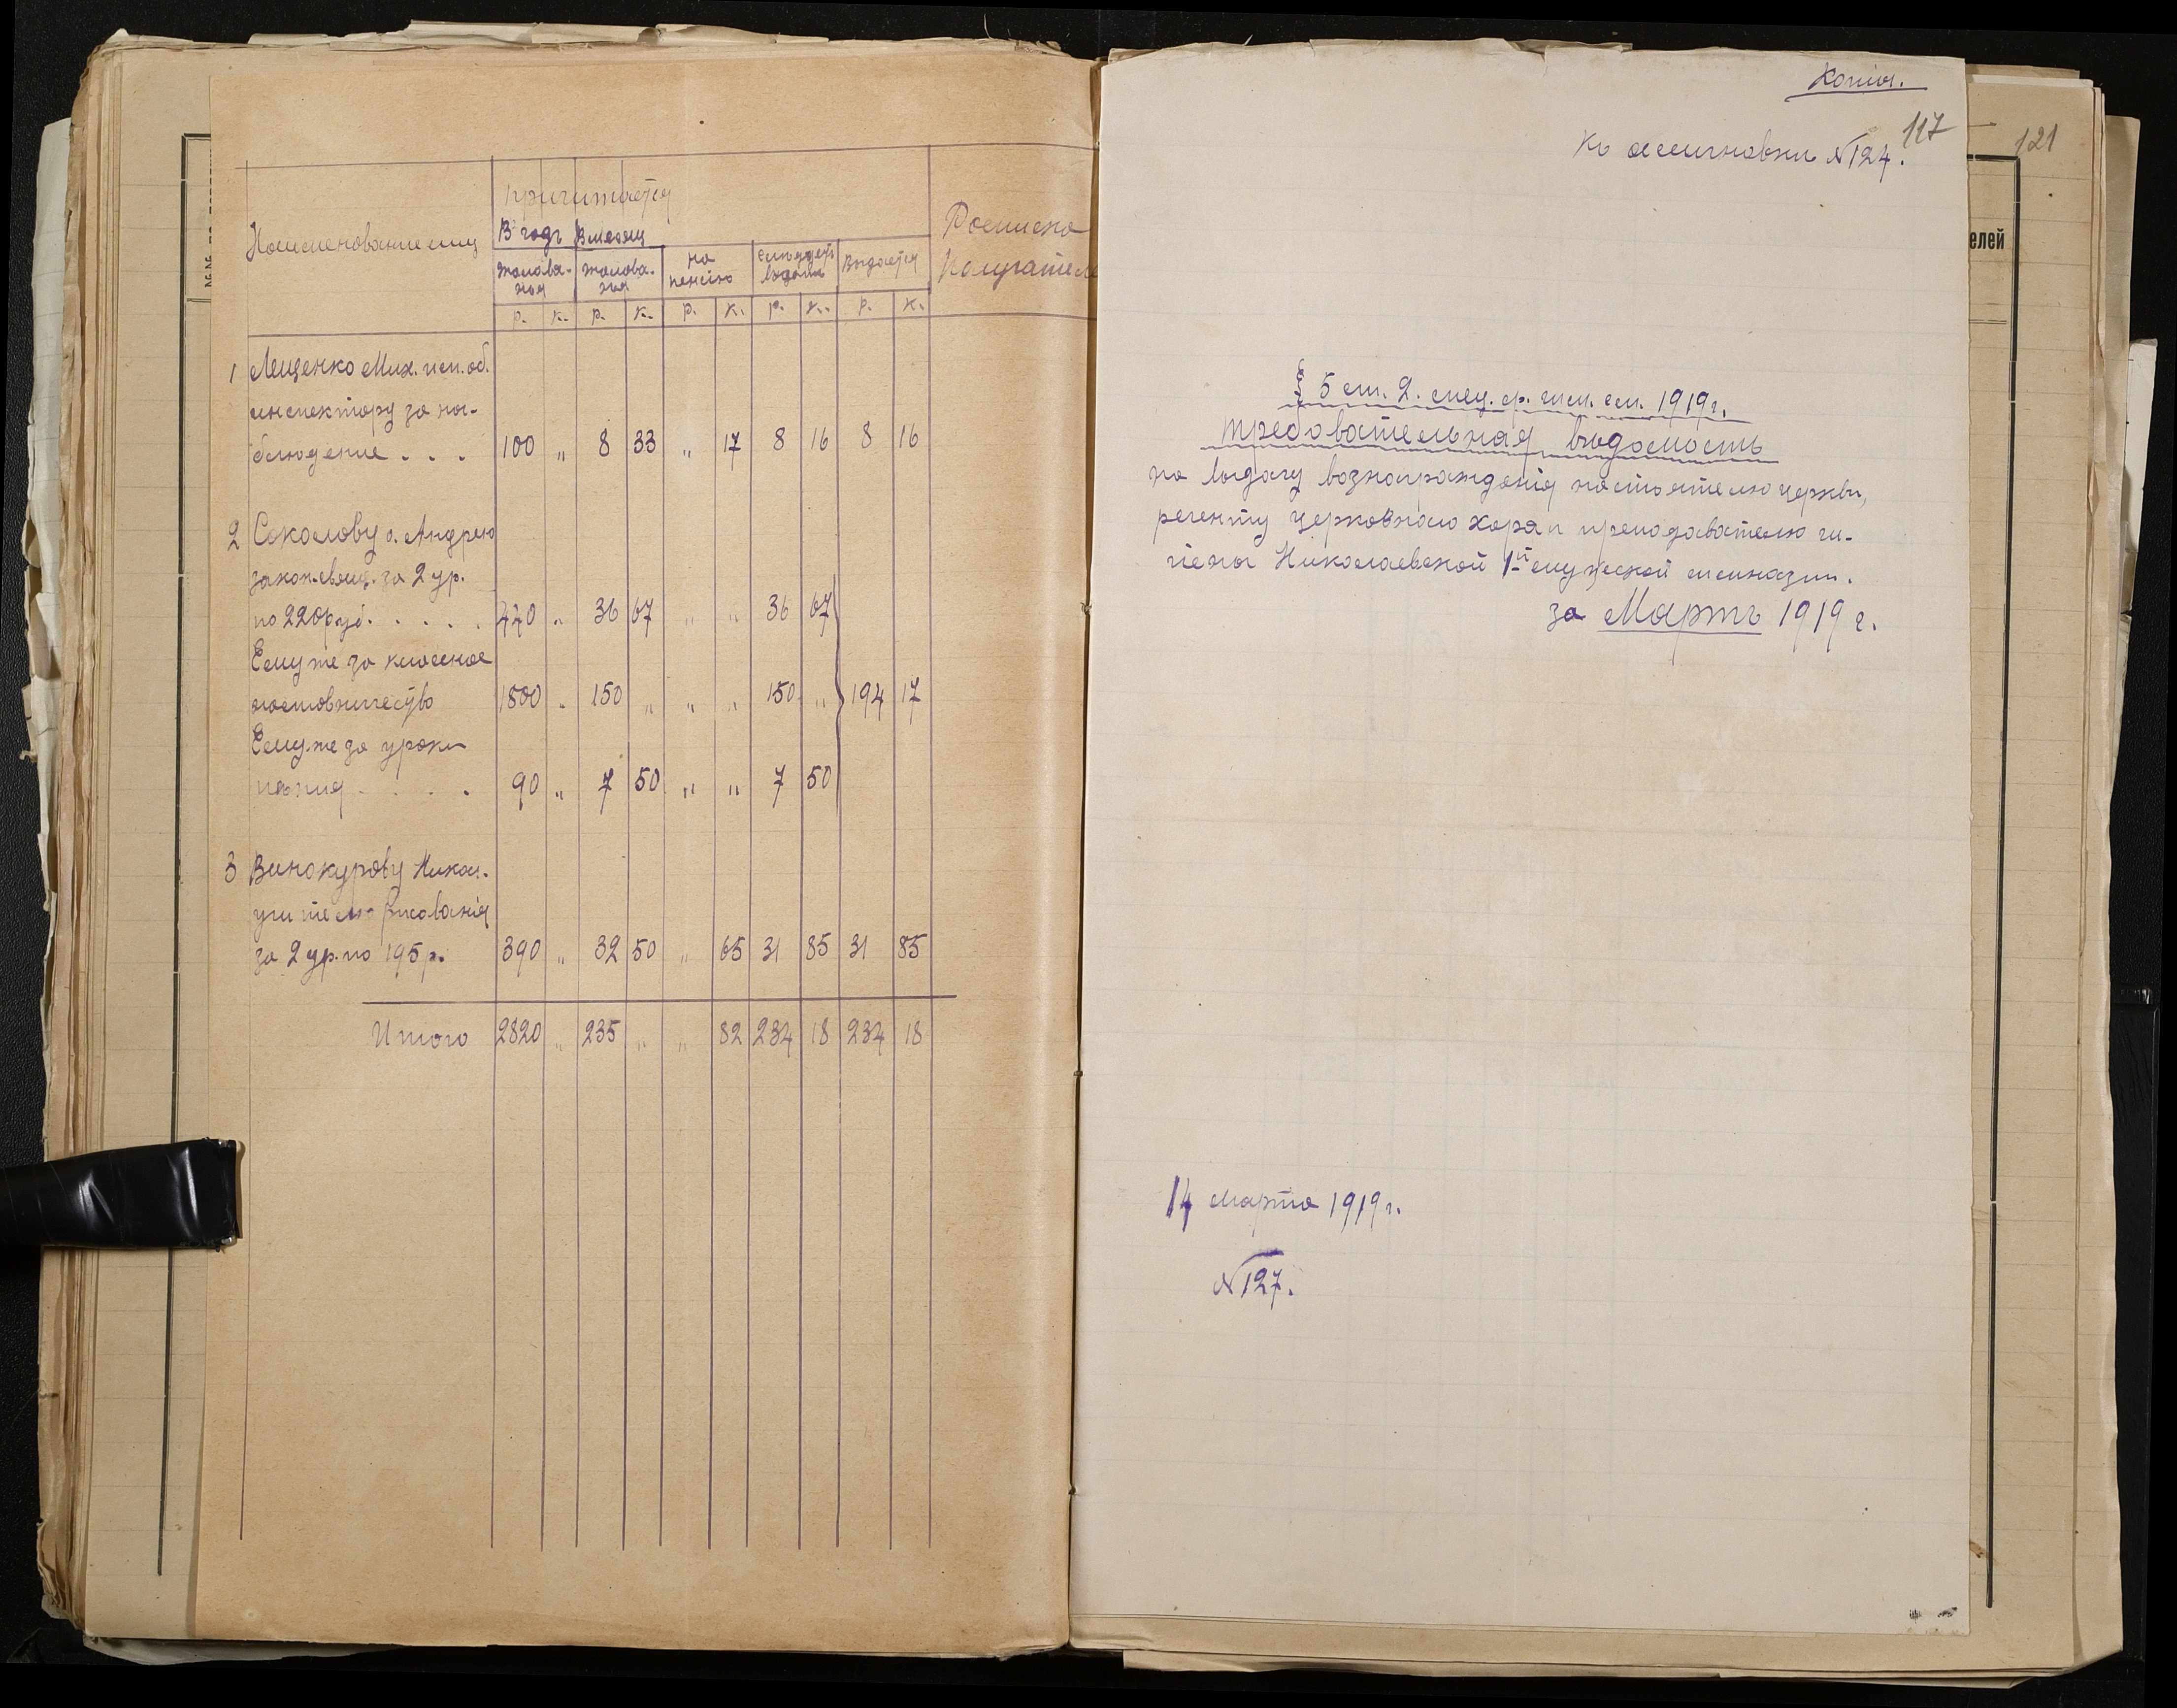 Наименованiе лиц
Причитается
В годъ В месяц
Жалова-
нья
жалова-
нья
на
пенсiю
Слѣдуетъ
выдать
Выдается
Росписка
Получателя
р. к. р. к. р. к. р. к. р. к.
1 Лещенко Мих. исп. об.
инспектору за на-
блюденiе . . . 100 „ 8 33 „ 17 8 16 8 16
2 Соколову о. Андрею
закон. свящ. за 2 ур.
по 220 руб. . . . . 440 „ 36 67 „ „ 36 67
Ему же за классное
наставничество 1800 „ 150 „ „ „ 150 „ 194 17
Ему же за уроки
пѣнiя . . . . 90 „ 7 50 „ „ 7 50
3 Винокурову Никол.
учителю рисованiя
за 2 ур. по 195 р. 390 „ 32 50 „ 65 31 85 31 85
Итого 2820 „ 235 „ „ 82 234 18 234 18
Копiя.
117
Къ ассигновки № 124.
§ 5 ст. 2. спец. ср. гим. см. 1919 г.
Требовательная вѣдомость
на выдачу вознагражденiя настоятелю церкви,
регенту церковнаго хора и преподавателю ги-
гiены Николаевской 1й мужеской гимназiи.
за Мартъ 1919 г.
14 марта 1919 г.
№ 127.
121
елей